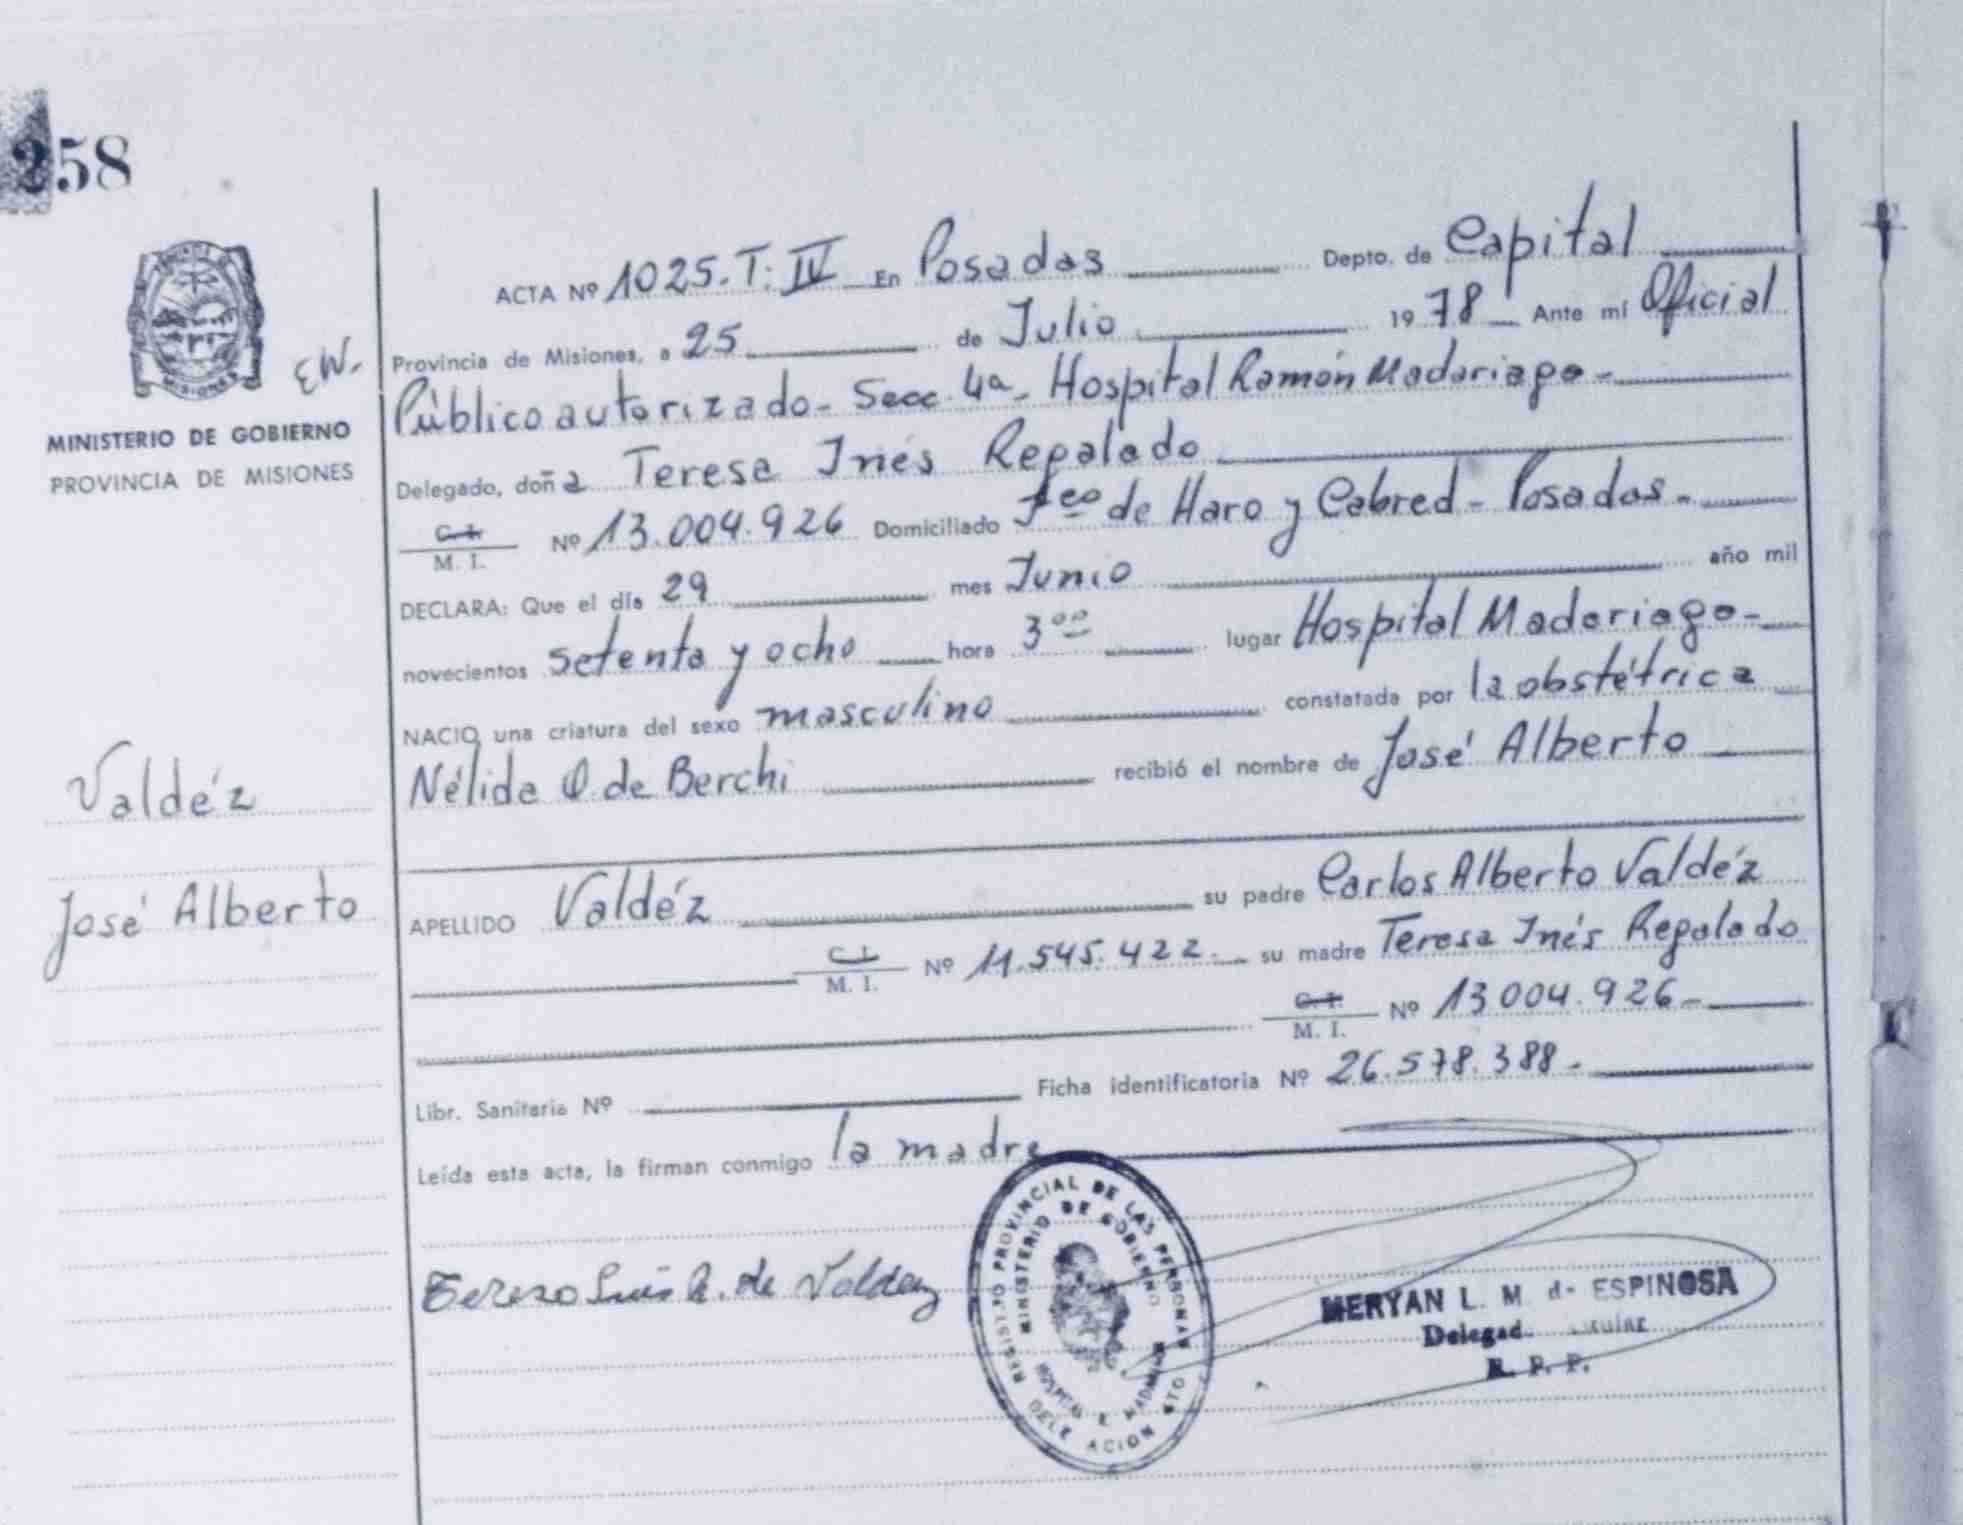 258
EW.
MINISTERIO DE GOBIERNO
PROVINCIA DE MISIONES
Valdéz
José Alberto
ACTA Nº 1025.T:IV En Posadas Depto. de Capital
Provincia de Misiones, a 25 de Julio 1978 Ante mí Oficial
Público autorizado- Secc. 4a- Hospital Ramón Madariaga-
Delegado, doña Teresa Inés Regalado
C. I. M. I. Nº 13.004.926 Domiciliado Fco de Haro y Cabred- Posadas-
DECLARA: Que el día 29 mes Junio año mil
novecientos setenta y ocho hora 3 00 lugar Hospital Madariaga-
NACIO una criatura del sexo masculino constatada por la obstétrica
Nélida O. de Berchi recibió el nombre de José Alberto
APELLIDO Valdéz su padre Carlos Alberto Valdéz
C. I. M. I. Nº 11.545.422- su madre Teresa Inés Regalado
C. I. M. I. Nº 13.004.926-
Libr. Sanitaria Nº Ficha identificatoria Nº 26.578.388-
Leída esta acta, la firman conmigo la madre
Teresa Inés R. de Valdez
REGISTRO PROVINCIAL DE LAS PERSONAS
MINISTERIO DE GOBIERNO
HOSPITAL R. MADARIAGA
MERYAN L. M. de ESPINOSA
Delegad
R. P. P.